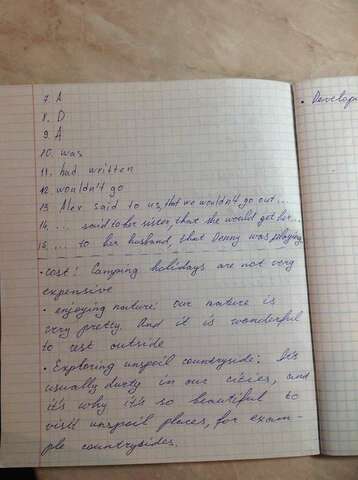 7. A
8. D
9. A
10. was
11. had written
12. wouldn't go
13. Alex said to us, that we wouldn't go out...
14. ... said to her sister, that she would get her...
15. ... to her husband, that Denny was playing
• cost: Camping holidays are not very
expensive
• enjoying nature: our nature is
very pretty. And it is wonderful
to rest outside
• Exploring unspoil countryside: It's
usually durty in our cities, and
it's why it's so beautiful to
visit unspoil places, for exam-
ple countrysides.
• Develop